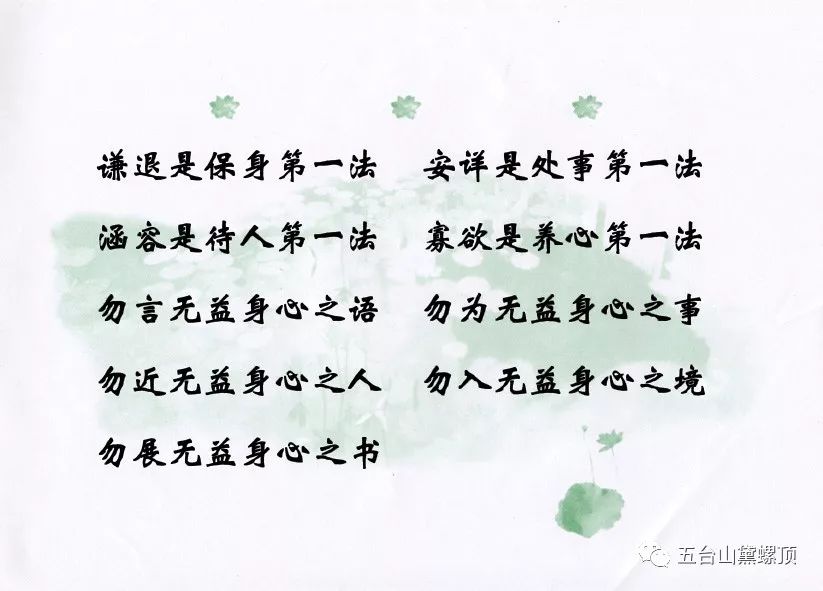 谦退是保身第一法 安详是处事第一法
涵容是待人第一法 寡欲是养心第一法
勿言无益身心之语 勿为无益身心之事
勿近无益身心之人 勿入无益身心之境
勿展无益身心之书
五台山黛螺顶